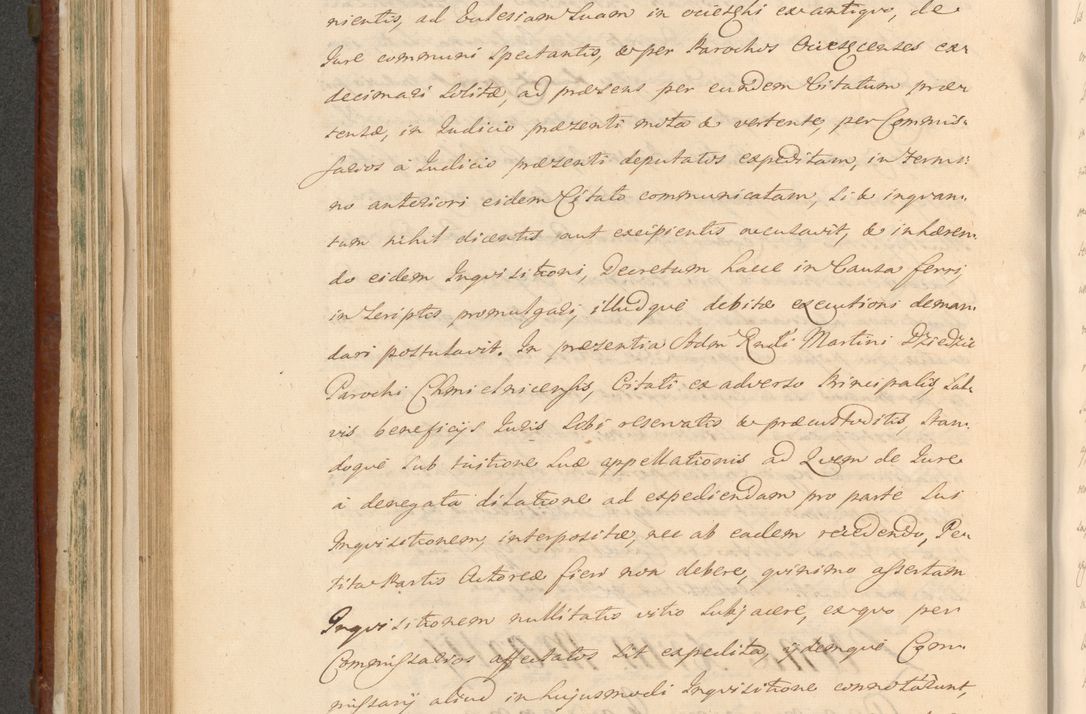 nientis, ad Eulesiam Suam in ocieszhi ex antiqvo, de
Jure communi Spectantis, & per Parochos Ociescenses ex=
decimari Solitæ, ad præsens per eundem Citatum præ=
tensæ, in Judicio præsenti motæ & vertentis, per Commis=
sarios â Judicio præsenti deputatos expeditam, in Termi=
no anteriori eidem Citato communicatam, Si & inqvan=
tum nihil dicentis aut excipientis accusavit, & inhæren=
do eidem Inqvisitioni, Decretum hacce in Causa ferri,
in Scriptis promulgari, illudqve debitæ executioni deman=
dari postulavit. In præsentia Adm Rndi Martini Dziedzic
Parochi Chmielnicensis, Citati ex adverso Principalis Sal=
vis beneficijs Juris Sibi reservatis & præcustoditis, Stan=
doqve Sub tuitione Suæ appellationis ad Qvem de Jure
â denegata dilatione ad expediendam pro parte Sui
Inqvisitionem, interpositæ, nec ab eadem recedendo, Pe=
tita Partis Actoreæ fieri non debere, qvinimo assertam
Inqvisitionem nullitatis vitio Subjacere, ex qvo per
Commissarios affectatos Sit expedita, ijdemqve Com=
missarij aliud in hujusmodi Inqvisitione connotarunt,